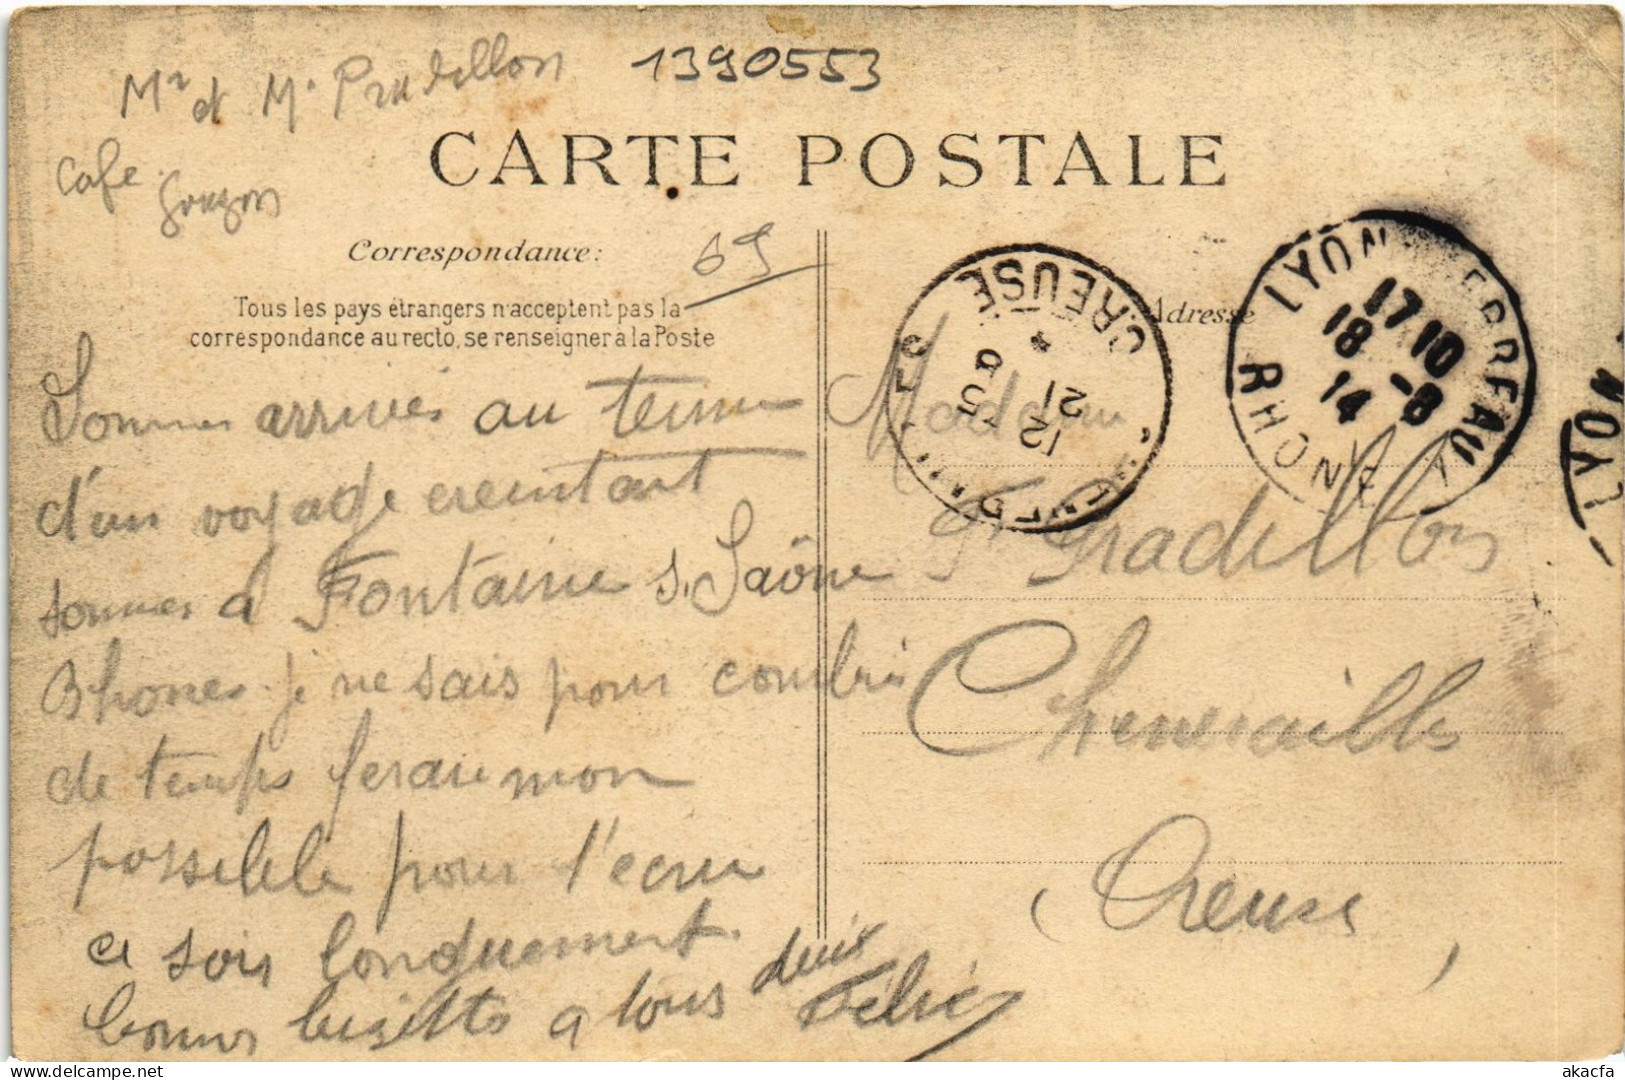 Mr et Me Pradillon
Café
Gouzon
1390553
CARTE POSTALE
Correspondance:
69
Tous les pays étrangers n'acceptent pas la
correspondance au recto, se renseigner à la Poste
Adresse
CREUSE
* 
12
21
LYON-PERRACHE
RHONE
17 10
18 -8
14
LYON
Sommes arrivés au terme
d'un voyage ereintant
sommes a Fontaine s. Saône
Rhones. je ne sais pour combien
de temps ferai mon
possible pour t'ecrire
ce soir longuement.
bonnes bisettes a tous deux
Félix
Madame
Pradillon
Chenerailles
(Creuse)
akacfa